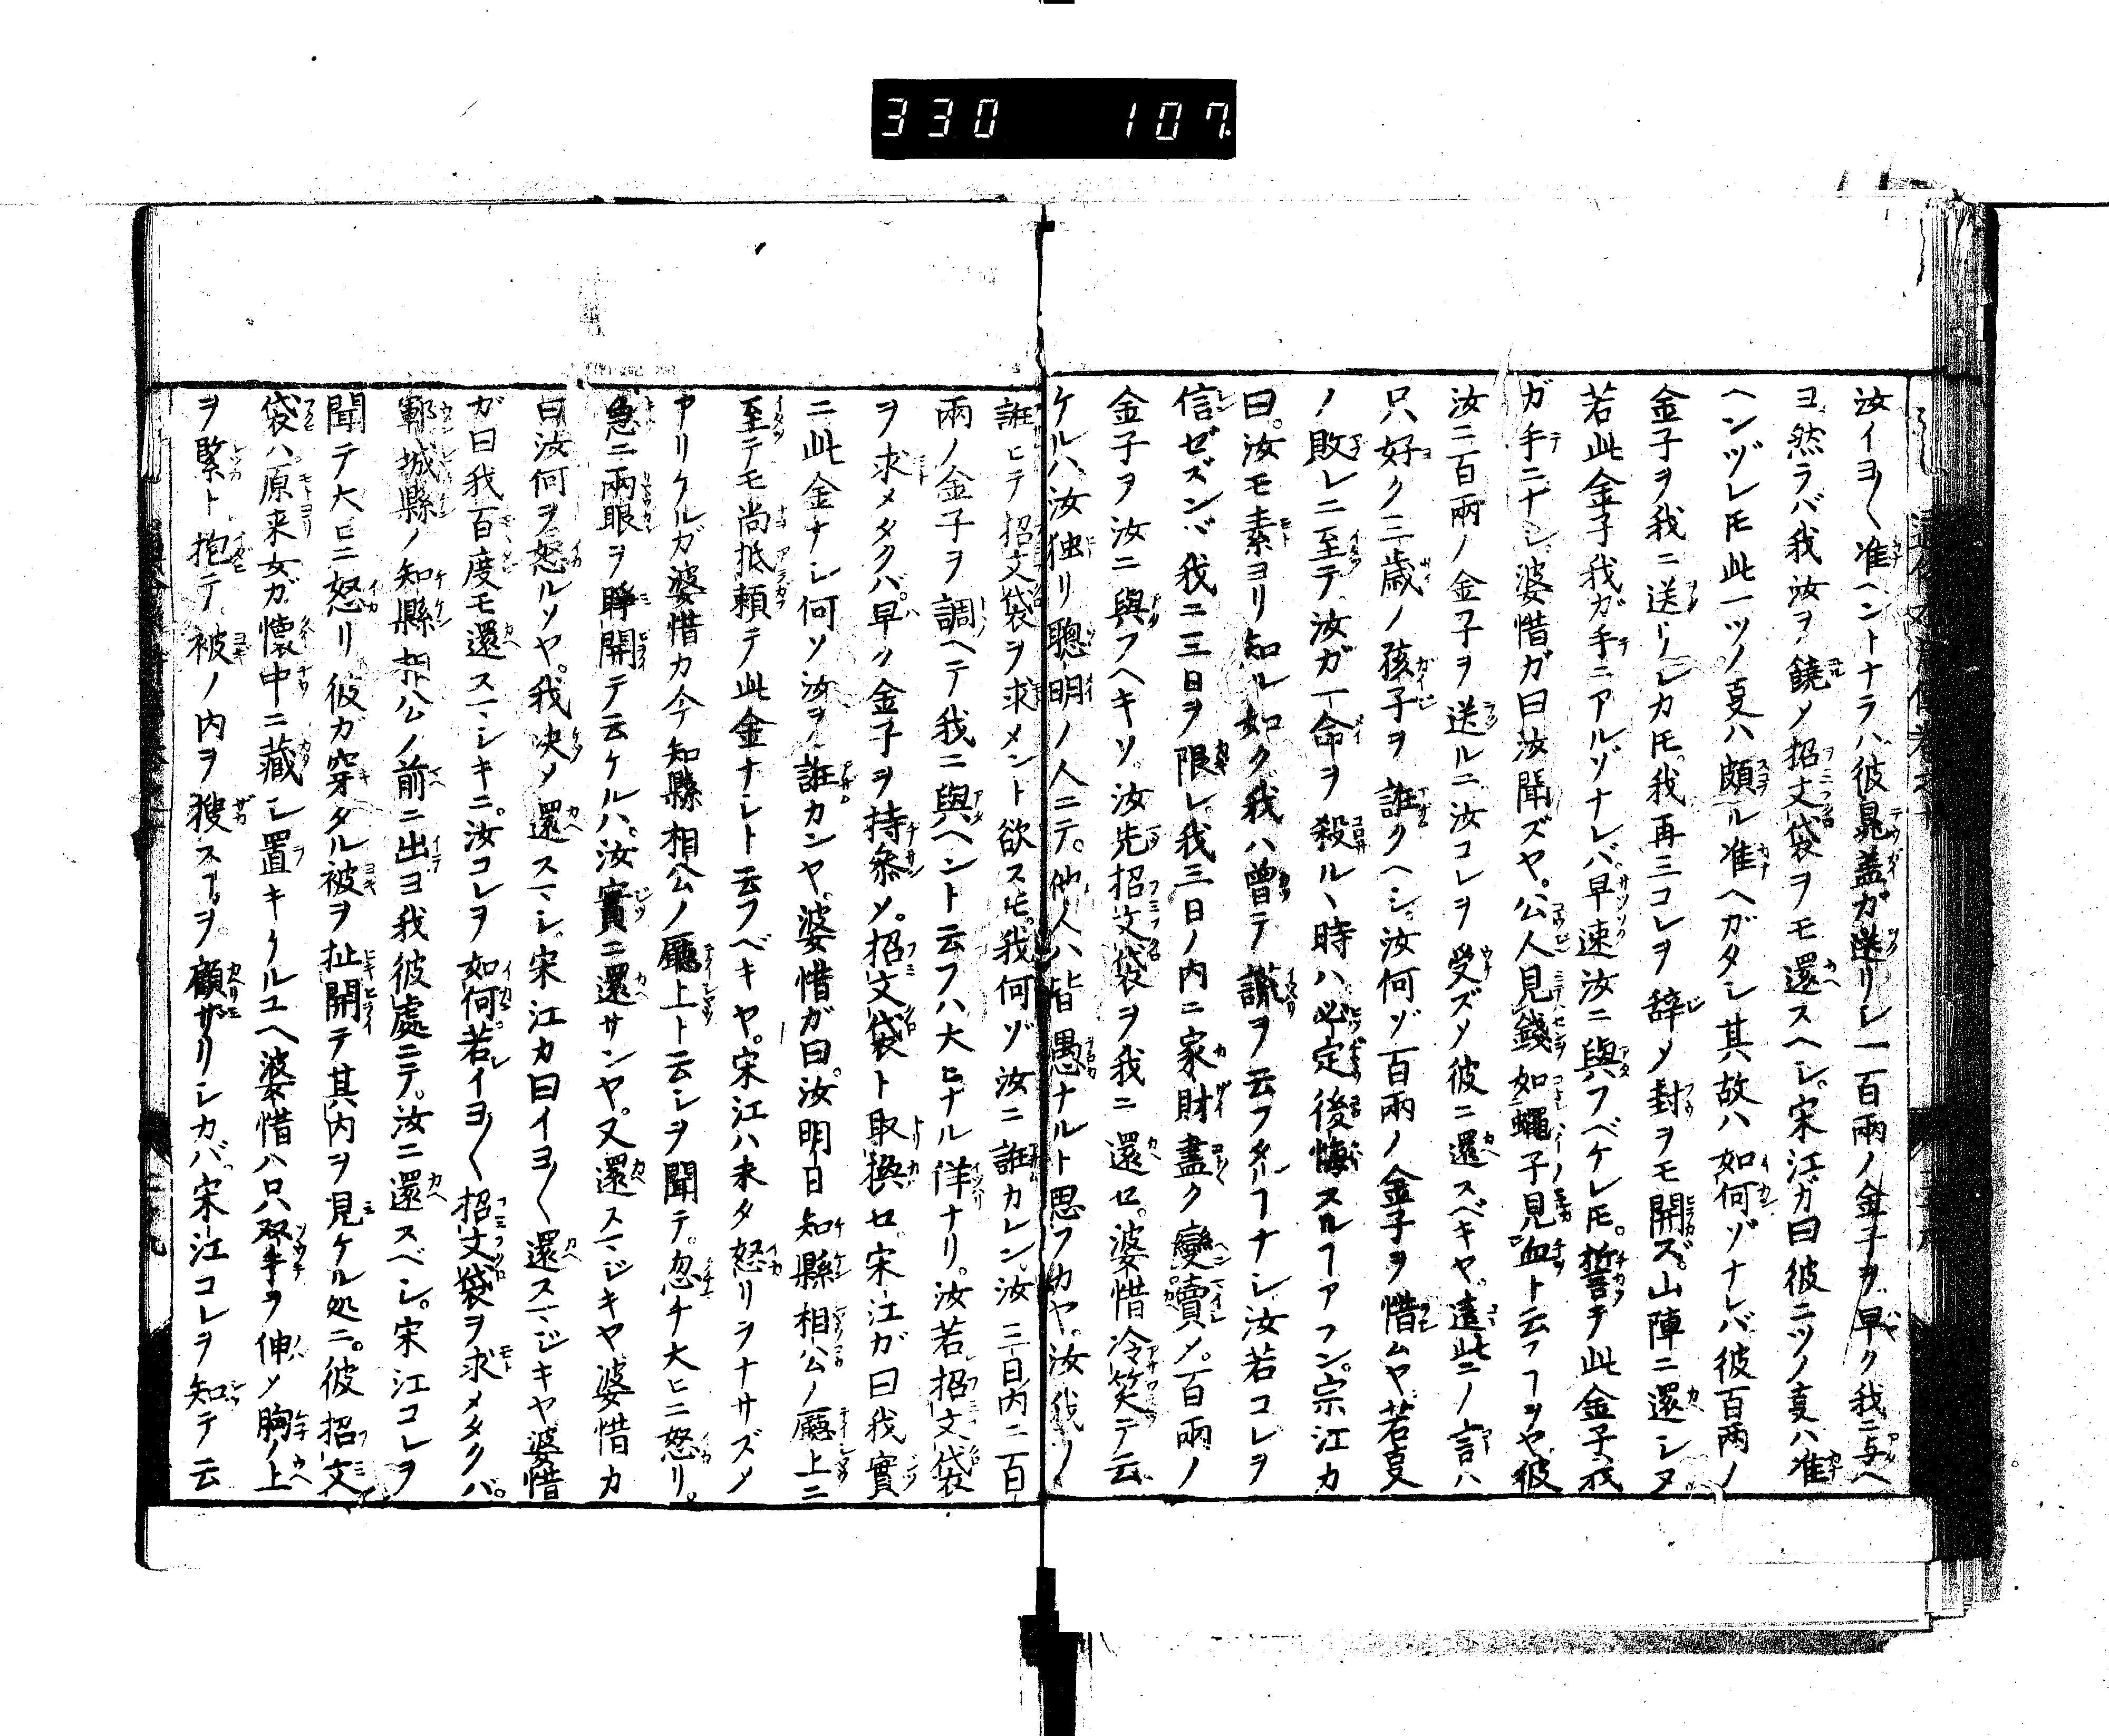 330 107
汝イヨ〱准ヘントナラハ彼晁盖ガ送リシ一百兩ノ金子ヲ早ク我ニ与ヘ
ヨ然ラバ我汝ヲ饒ノ招文袋ヲモ還スヘシ宋江ガ曰彼ニツノ叓ハ准
ヘンヅレ𪜈此一ツノ叓ハ頗ル准ヘガタシ其故ハ如何ゾナレバ彼百两ノ
金子ヲ我ニ送リシカ𪜈我再三コレヲ辞〆封ヲモ開ズ山陣ニ還シヌ
若此金子我ガ手ニアルゾナレバ早速汝ニ與フベケレ𪜈誓テ此金子我
ガ手ニナシ婆惜ガ曰汝聞ズヤ公人見錢如蠅子見血ト云フヿヲヤ彼
汝ニ百兩ノ金子ヲ送ルニ汝コレヲ受ズ〆彼ニ還スベキヤ這些ノ言ハ
只好ク三歳ノ孩子ヲ誑クヘシ汝何ゾ百兩ノ金子ヲ惜ムヤ若叓
ノ敗レニ至テ汝ガ一命ヲ殺ル丶時ハ必定後悔スルヿアラン宗江カ
曰汝モ素ヨリ知ル如ク我ハ曽テ謊ヲ云フタルヿナシ汝若コレヲ
信ゼズンバ我ニ三日ヲ限レ我三日ノ内ニ家財盡ク變賣〆一百兩ノ
金子ヲ汝ニ與フヘキソ汝先招文袋ヲ我ニ還セ婆惜冷笑テ云
ケルハ汝独リ聰明ノ人ニテ他人ハ皆愚ナルト思フカヤ汝我ノ
誑ヒテ招文袋ヲ求メント欲ス𪜈我何ゾ汝ニ誑カレン汝三日内ニ一百
兩ノ金子ヲ調ヘテ我ニ與ヘント云フハ大ヒナル佯ナリ汝若招文袋
ヲ求メタクバ早ク金子ヲ持參〆招文袋ト取換セ宋江ガ曰我實
ニ此金ナシ何ソ汝ヲ誑カンヤ婆惜ガ曰汝明日知縣相公ノ廳上ニ
至テモ尚抵頼テ此金ナシト云フベキヤ宋江ハ未タ怒リヲナサズ〆
ヤリケルガ婆惜カ今知縣相公ノ廳上ト云シヲ聞テ忽チ大ヒニ怒リ
急ニ兩眼ヲ睜開テ云ケルハ汝實ニ還サンヤ又還スマジキヤ婆惜カ
曰汝何ヲ怒ルソヤ我决〆還スマシ宋江カ曰イヨ〱還スマジキヤ婆惜
ガ曰我百度モ還スマシキニ汝コレヲ如何若イヨ〱招文袋ヲ求メタクバ
鄆城縣ノ知縣相公ノ前ニ出ヨ我彼處ニテ汝ニ還スベシ宋江コレヲ
聞テ大ヒニ怒リ彼ガ穿タル被ヲ扯開テ其内ヲ見ケル処ニ彼招文
袋ハ原来女ガ懐中ニ藏シ置キケルユヘ婆惜ハ只双手ヲ伸〆胸ノ上
ヲ緊ト抱テ被ノ内ヲ搜スヿヲ顧ザリシカバ宋江コレヲ知テ云